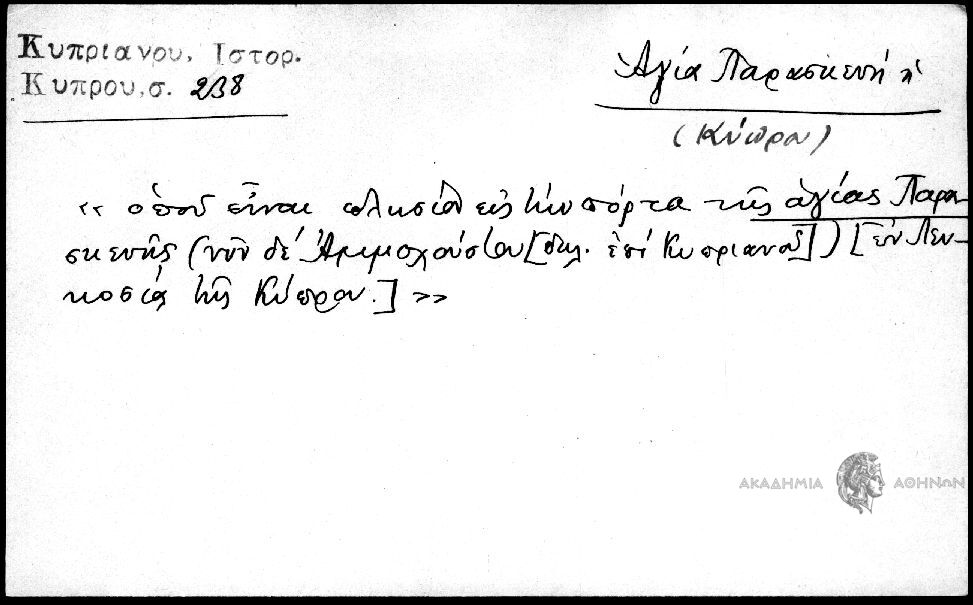 Κυπριανου, Ιστορ.
Κυπρου,σ. 238
Ἁγία Παρασκευή ἡ
(Κύπρου)
«ὁποῦ εἶναι πλησίον εἰς τὴν πόρτα τῆς ἁγίας Παρα-
σκευῆς (νῦν δὲ Ἀμμοχούστου [δηλ. ἐπὶ Κυπριανοῦ]) [ἐν Λευ-
κοσίᾳ τῆς Κύπρου.]»
ΑΚΑΔΗΜΙΑ ΑΘΗΝΩΝ